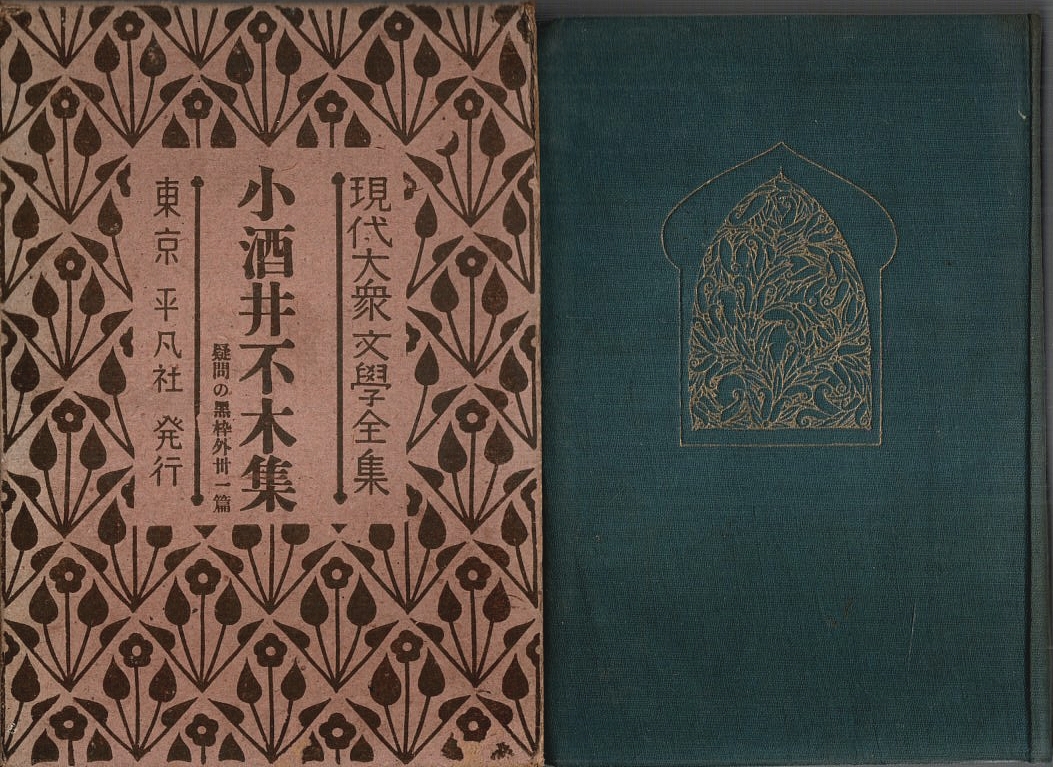 現代大衆文學全集
小酒井不木集
疑問の黒枠外卅一篇
東京 平凡社 発行